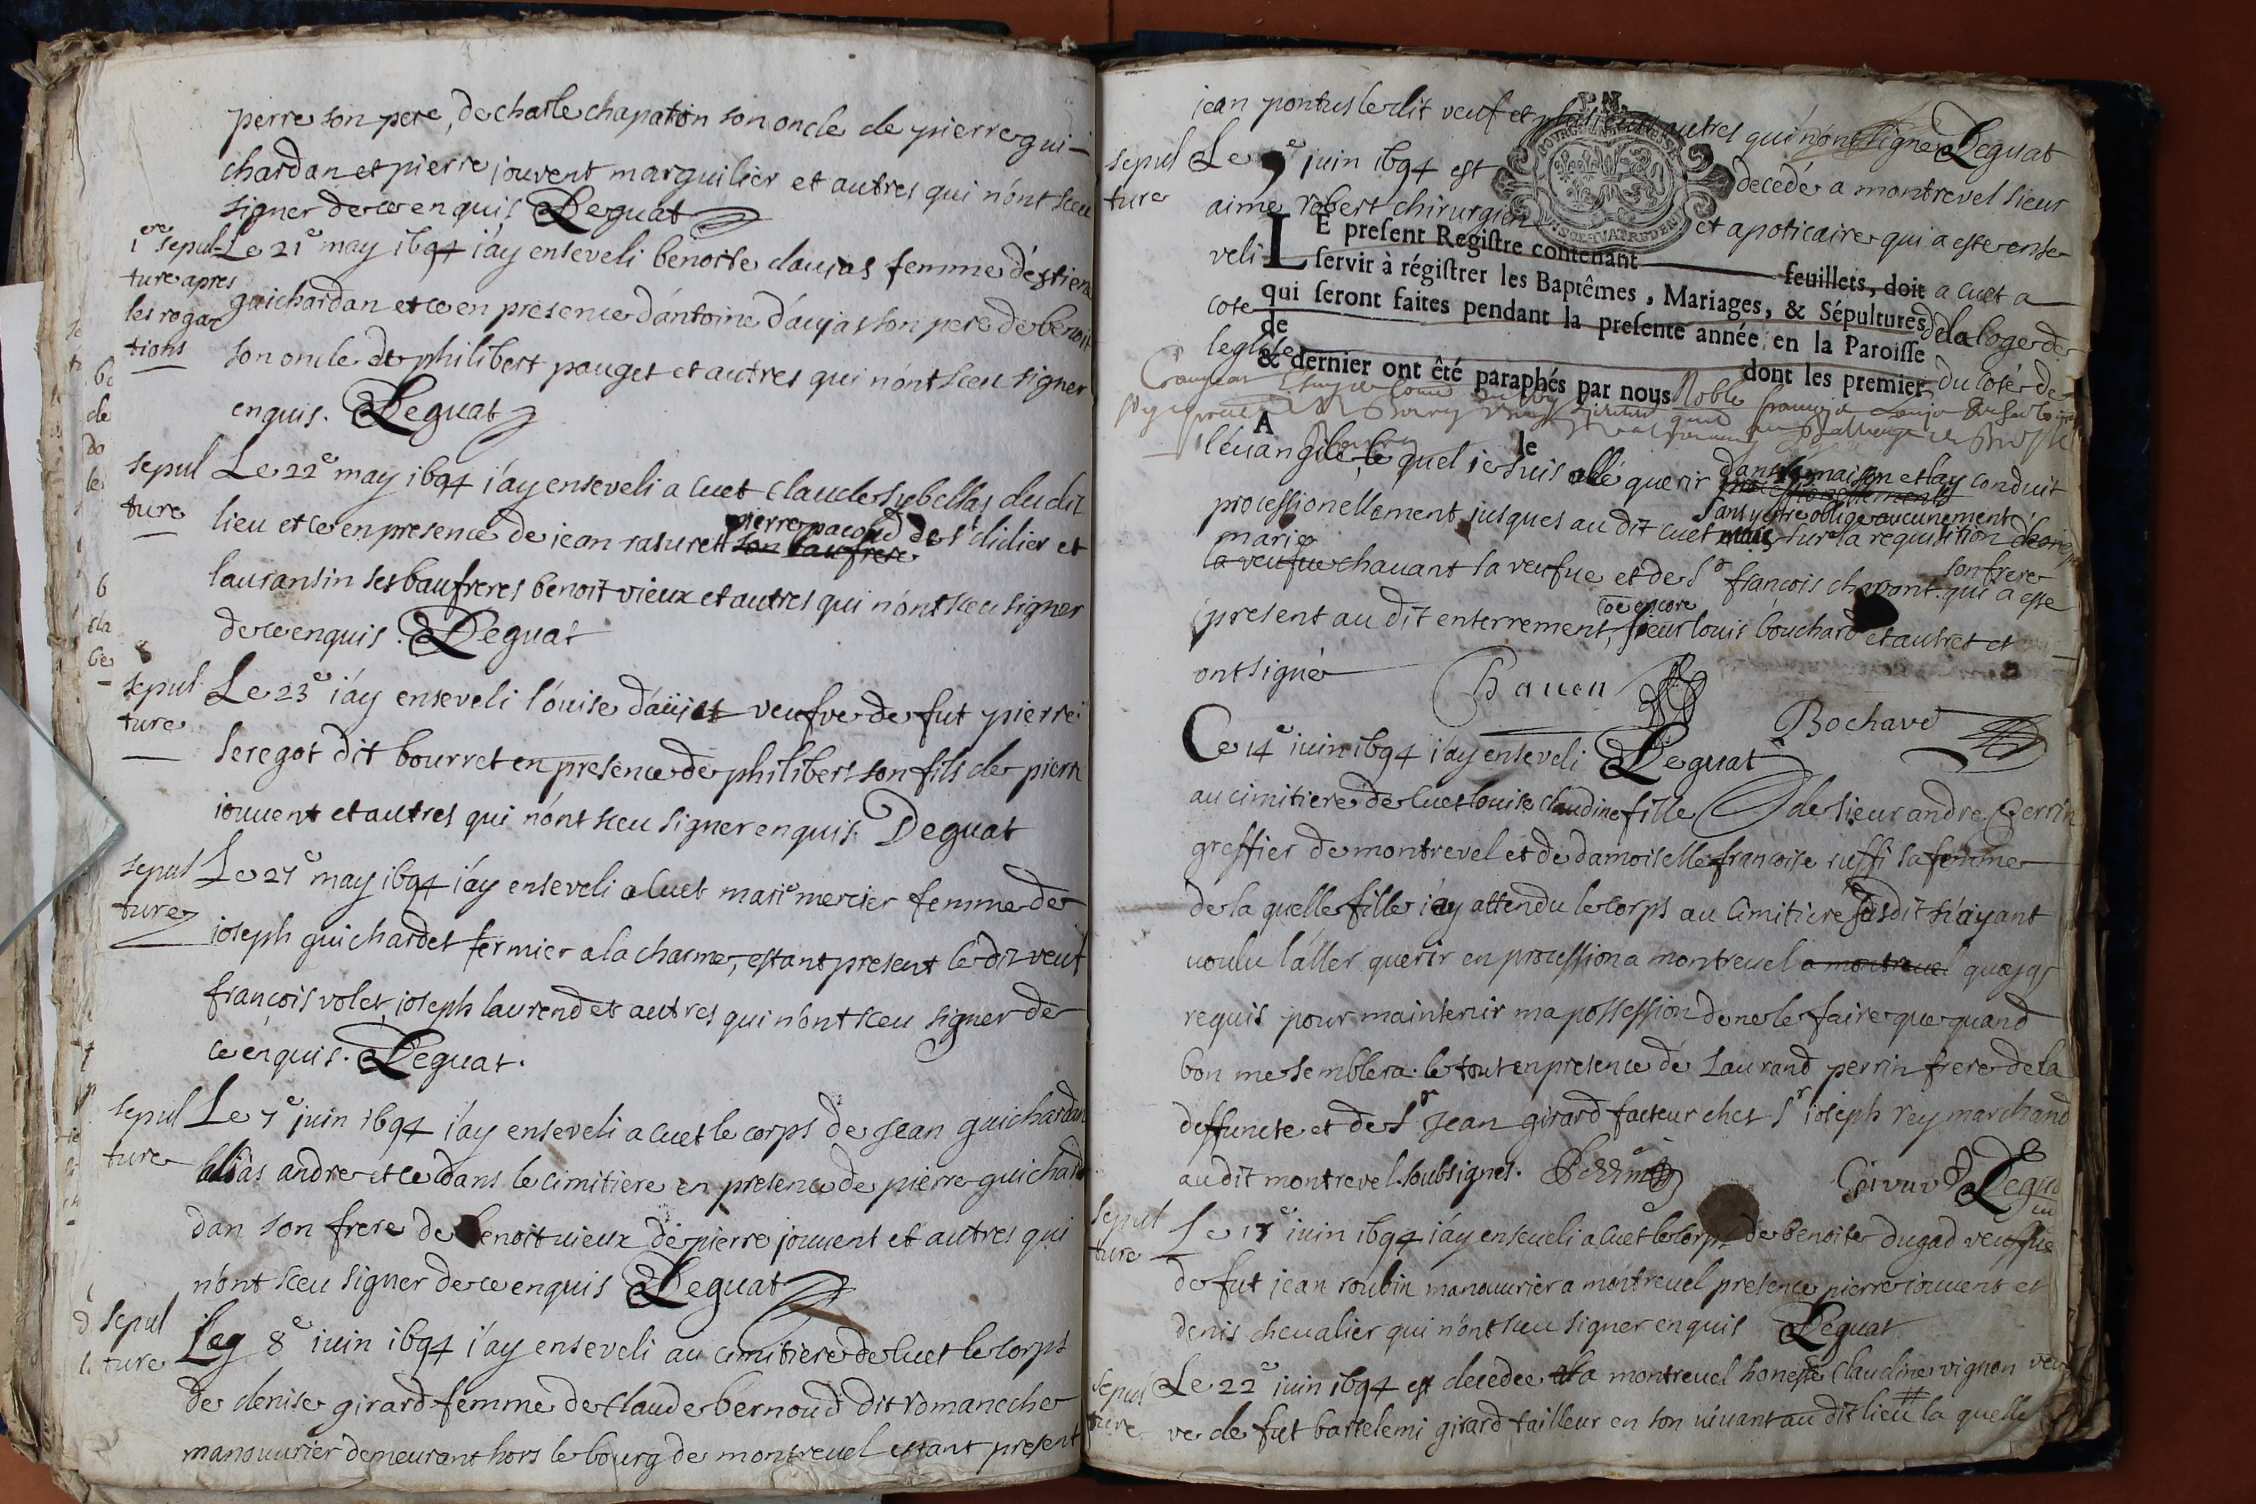 perre son pere, de charle chapaton son oncle de pierre gui-
chardan et pierre jouvent marguilier et autres qui n'ont sceu
signer de ce enquis Deguat
1ere sepul-
ture apres
les roga
tions
Le 21e may 1694 i'ay enseveli benoite daujas femme d'estiene
guichardan et ce en presence d'antoine d'aujas son pere de benoit
son oncle de philibert pauget et autres qui n'ont sceu signer
enquis. Deguat
sepul
ture
Le 22e may 1694 i'ay enseveli a cuet claude sybellas du dit
lieu et ce en presence de jean rasurel pierre pacoud de st didier et
son baufrere
lauransin ses baufreres benoit vieux et autres qui n'ont sceu signer
de ce enquis. Deguat
sepul
ture
Le 23e i'ay enseveli l'ouise d'aüjas veufve de fut pierre
seregot dit bourret en presence de philibert son fils de pierre
iouvent et autres qui n'ont sceu signer enquis. Deguat
sepul
ture
Le 27e may 1694 i'ay enseveli a Cuet marie mercier femme de
ioseph guichardet fermier a la charme, estant present le dit veuf
françois volet, ioseph laurend et autres qui n'ont sceu signer de
ce enquis. Deguat.
sepul
ture
Le 7e juin 1694 i'ay enseveli a cuet le corps de Jean guichardan
alias andre et ce dans le cimitiere en presence de pierre guichar
dan son frere de benoit vieux de pierre jouvent et autres qui
n'ont sceu signer de ce enquis Deguat
sepul
ture
Le 8e iuin 1694 i'ay enseveli au cimitiere de Cuet le corps
de denise girard femme de Claude bernoud dit Romaneche
manouvrier demeurant hors le bourg de montrevel estant present
jean pontus le dit veuf et plusieurs autres qui n'ont signe Deguat
sepul
ture
Le 9e juin 1694 est decedé a montrevel sieur
aime robert chirurgien et apoticaire qui a esté ense
veli a cuet a
LE present Registre contenant feuillets, doit
servir à régistrer les Baptêmes, Mariages, & Sépultures
qui seront faites pendant la presente année, en la Paroisse
de dont les premier
& dernier ont êté paraphés par nous
A le
coté de la loge de
leglise du coté de
l'evangile, le quel ie suis allé querir dans sa maison et lay conduit
processionellement jusques au dit cuet sans y estre obligé aucunement mais sur la requisition
marie
la veufue chavant sa veufue et de Sr françois chavant son frere qui a esté
present au dit enterrement, sieur louis bouchard et autres et
ont signé
Chauen Bochard
Ce 14e iuin 1694 i'ay enseveli Deguat
au cimitiere de Cuet louise claudine fille de sieur andre Perrin
greffier de montrevel et de damoiselle françoise ruffi sa femme
de la quelle fille i'ay attendu le corps au cimitiere susdit n'ayant
voulu l'aller querir en procession a montrevel a montrevel quoyq
requis pour maintenir ma possession de ne le faire que quand
bon me semblera. le tout en presence de Laurand perrin frere de la
deffuncte et de Sr Jean girard facteur chez Sr ioseph rey marchand
audit montrevel soubsignes. Perrin Girard Deguat
sepul
ture
Le 17e iuin 1694 i'ay enseveli a Cuet le corps de benoite dugad veuffue
de fut jean roubin manouvrier a montrevel presence pierre iouvent et
denis chevalier qui n'ont sceu signer enquis Deguat
sepul
ture
Le 22e iuin 1694 est decedee a montrevel honeste Claudine vignon veu
ve de fut bartelemi girard tailleur en son vivant au dit lieu la quelle